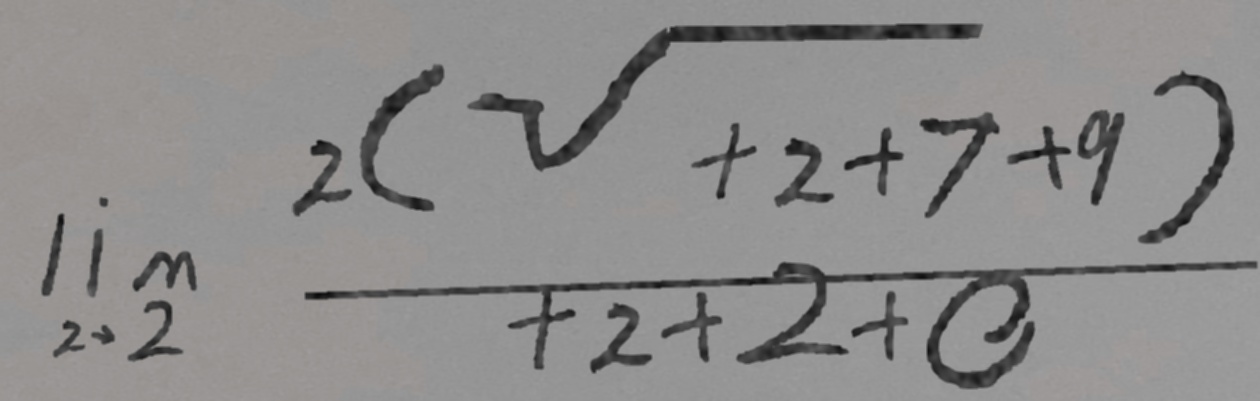 lim z→2 2(√ +z+7+9) / +z+2+0